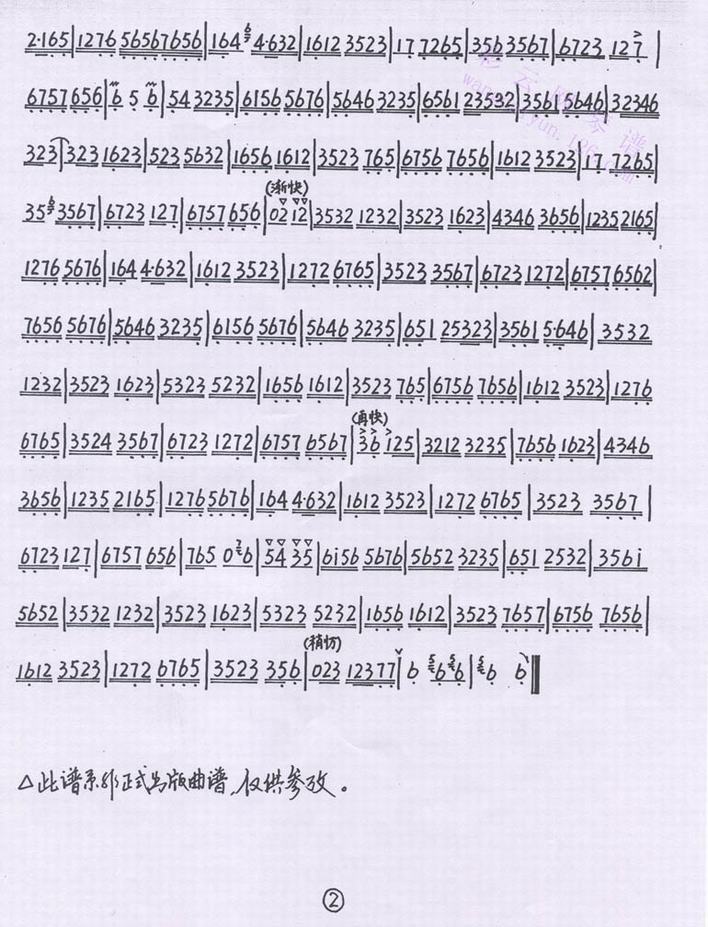 2·165|1276 56567656|164 6 4·632|1612 3523|17 7265|356 3567|6723 127|
6757 656|6 5 6|54 3235|6156 5676|5646 3235|6561 23532|3561 5646|32346
323|323 1623|523 5632|1656 1612|3523 765|6756 7656|1612 3523|17 7265|
35 6 3567|6723 127|6757 656|(渐快) 02 12|3532 1232|3523 1623|4346 3656|1235 2165|
1276 5676|164 4·632|1612 3523|1272 6765|3523 3567|6723 1272|6757 6562|
7656 5676|5646 3235|6156 5676|5646 3235|651 25323|3561 5·646|3532
1232|3523 1623|5323 5232|1656 1612|3523 765|6756 7656|1612 3523|1276
6765|3524 3567|6723 1272|6757 6567|(再快) 36 125|3212 3235|7656 1623|4346
3656|1235 2165|1276 5676|164 4·632|1612 3523|1272 6765|3523 3567|
6723 127|6757 656|765 0 6|54 35|6i56 5676|5652 3235|651 2532|356i
5652|3532 1232|3523 1623|5323 5232|1656 1612|3523 7657|6756 7656|
1612 3523|1272 6765|3523 356|023 12377|6 5 6 5 6|5 6 6‖
△此谱系非正式出版曲谱,仅供参改。
②